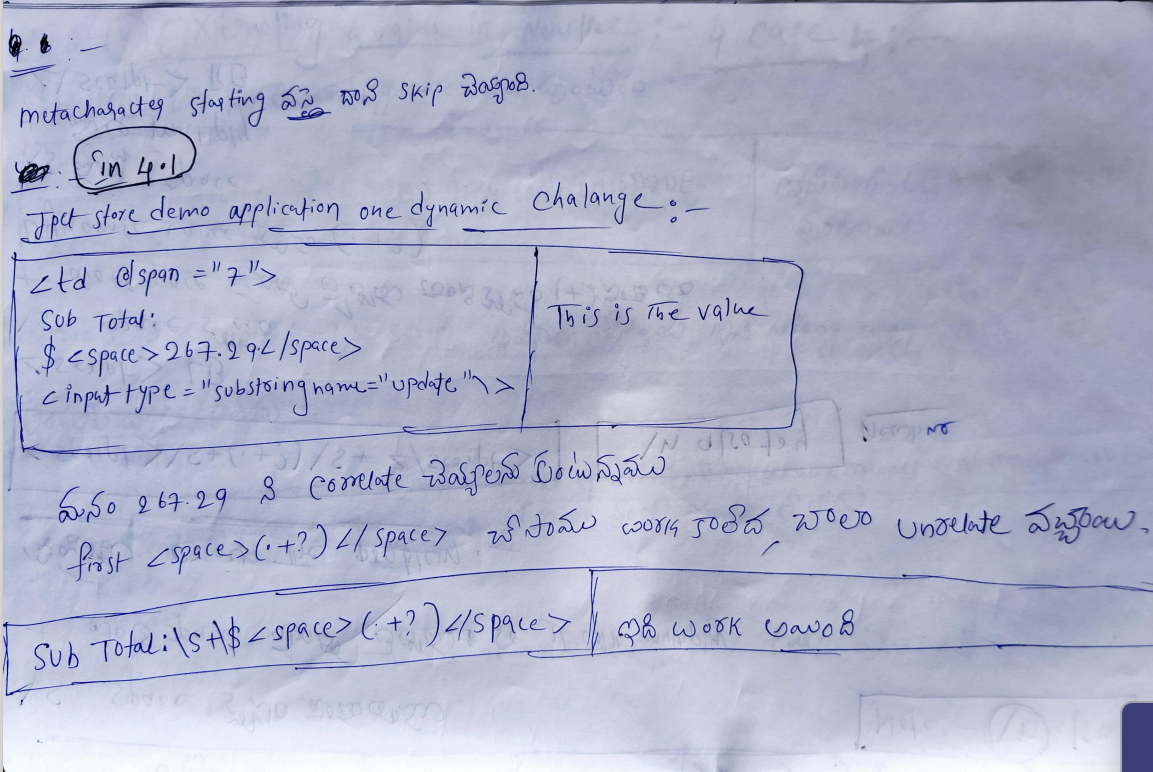 metacharacter starting వస్తే దానిని skip చెయ్యాలి.
in 4.1
Jpet store demo application one dynamic chalange :-
<td colspan ="7">
Sub Total:
$ <space>267.29</space>
<input type ="substring name="update"\>
This is The value
మనం 267.29 ని correlate చెయ్యాలను కుంటున్నాము
first <space>(.+?)</space> work కాలేదు, చాలా unrelate వచ్చాయి.
Sub Total:\s+\$<space>(.+?)</space>
ఇది work అయింది